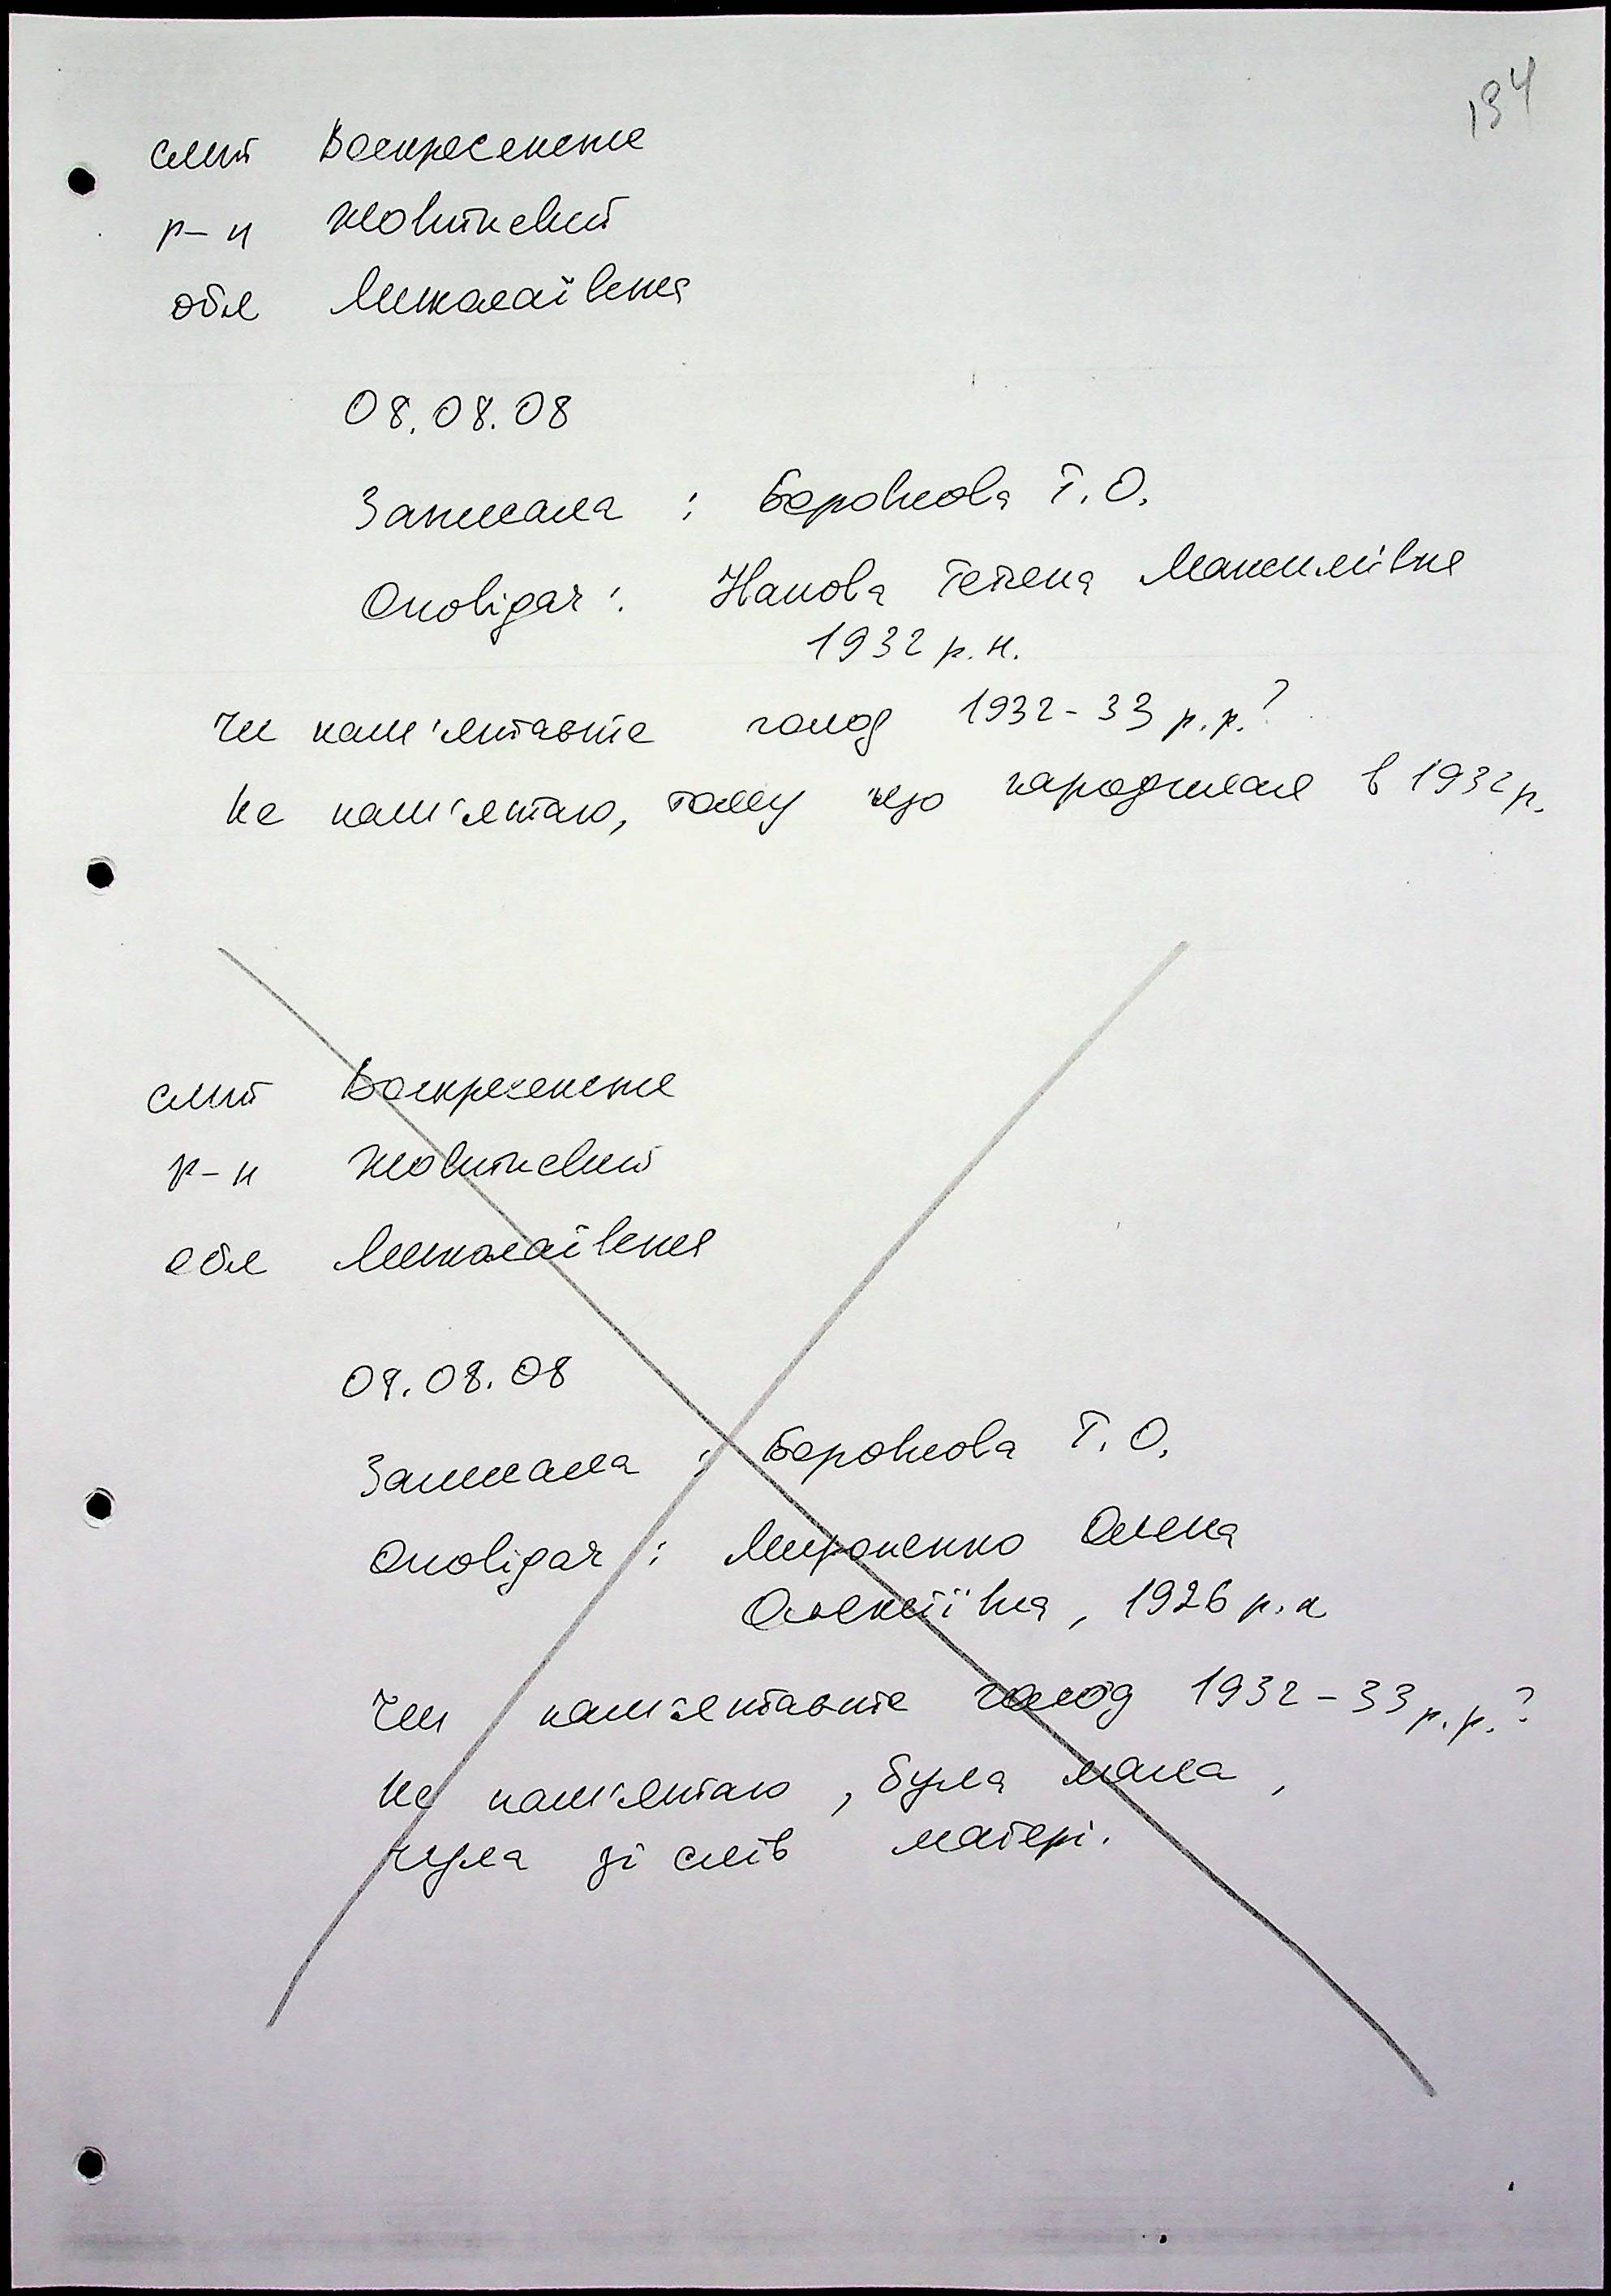 194
смт Воскресенське
р-н Жовтневий
обл Миколаївська
08.08.08
Записала : Боровкова Т.О.
Оповідач : Тетяна Максимівна
1932 р.н.
Чи пам'ятаєте голод 1932-33 р.р.?
Не пам'ятаю, тому що народилася в 1932 р.
смт Воскресенське
р-н Жовтневий
обл Миколаївська
09.08.08
Записала : Боровкова Т.О.
Оповідач : Мироненко Олена
Олексіївна, 1926 р.н
Чи пам'ятаєте голод 1932-33 р.р.?
Не пам'ятаю, була мала,
чула зі слів матері.